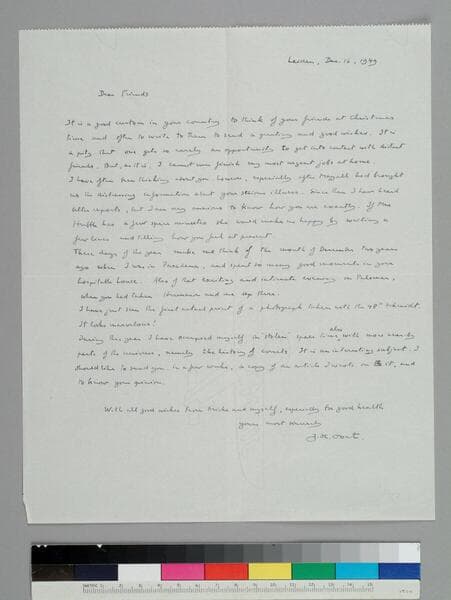 Leiden, Dec. 16, 1949
Dear Friends
It is a good custom in your country to think of your friends at Christmas
time and often to write to them to send a greeting and good wishes. It is
a pity that one gets so rarely an opportunity to get into contact with distant
friends. But, as it is, I cannot even finish my most urgent jobs at home.
I have often been thinking about you however, especially after Mayall had brought
us the distressing information about your serious illness. Since then I have heard
better reports, but I am very anxious to know how you are exactly. If Mrs
Hubble has a few spare minutes she would make me happy by writing a
few lines and telling how you feel at present.
These days of the year make me think of the month of December two years
ago when I was in Pasadena, and spent so many good moments in your
hospitable house. Also of that exciting and intimate evening on Palomar,
when you had taken and me up there.
I have just seen the first actual print of a photograph taken with the 48" Schmidt.
It looks marvelous!
During this year I have occupied myself in stolen spare time also with more nearby
parts of the universe, namely the history of comets. It is an interesting subject. I
should like to send you, in a few weeks, a copy of an article I wrote on it, and
to know your opinion.
With all good wishes from Mieke and myself, especially for good health
yours most sincerely
J. H. Oort.